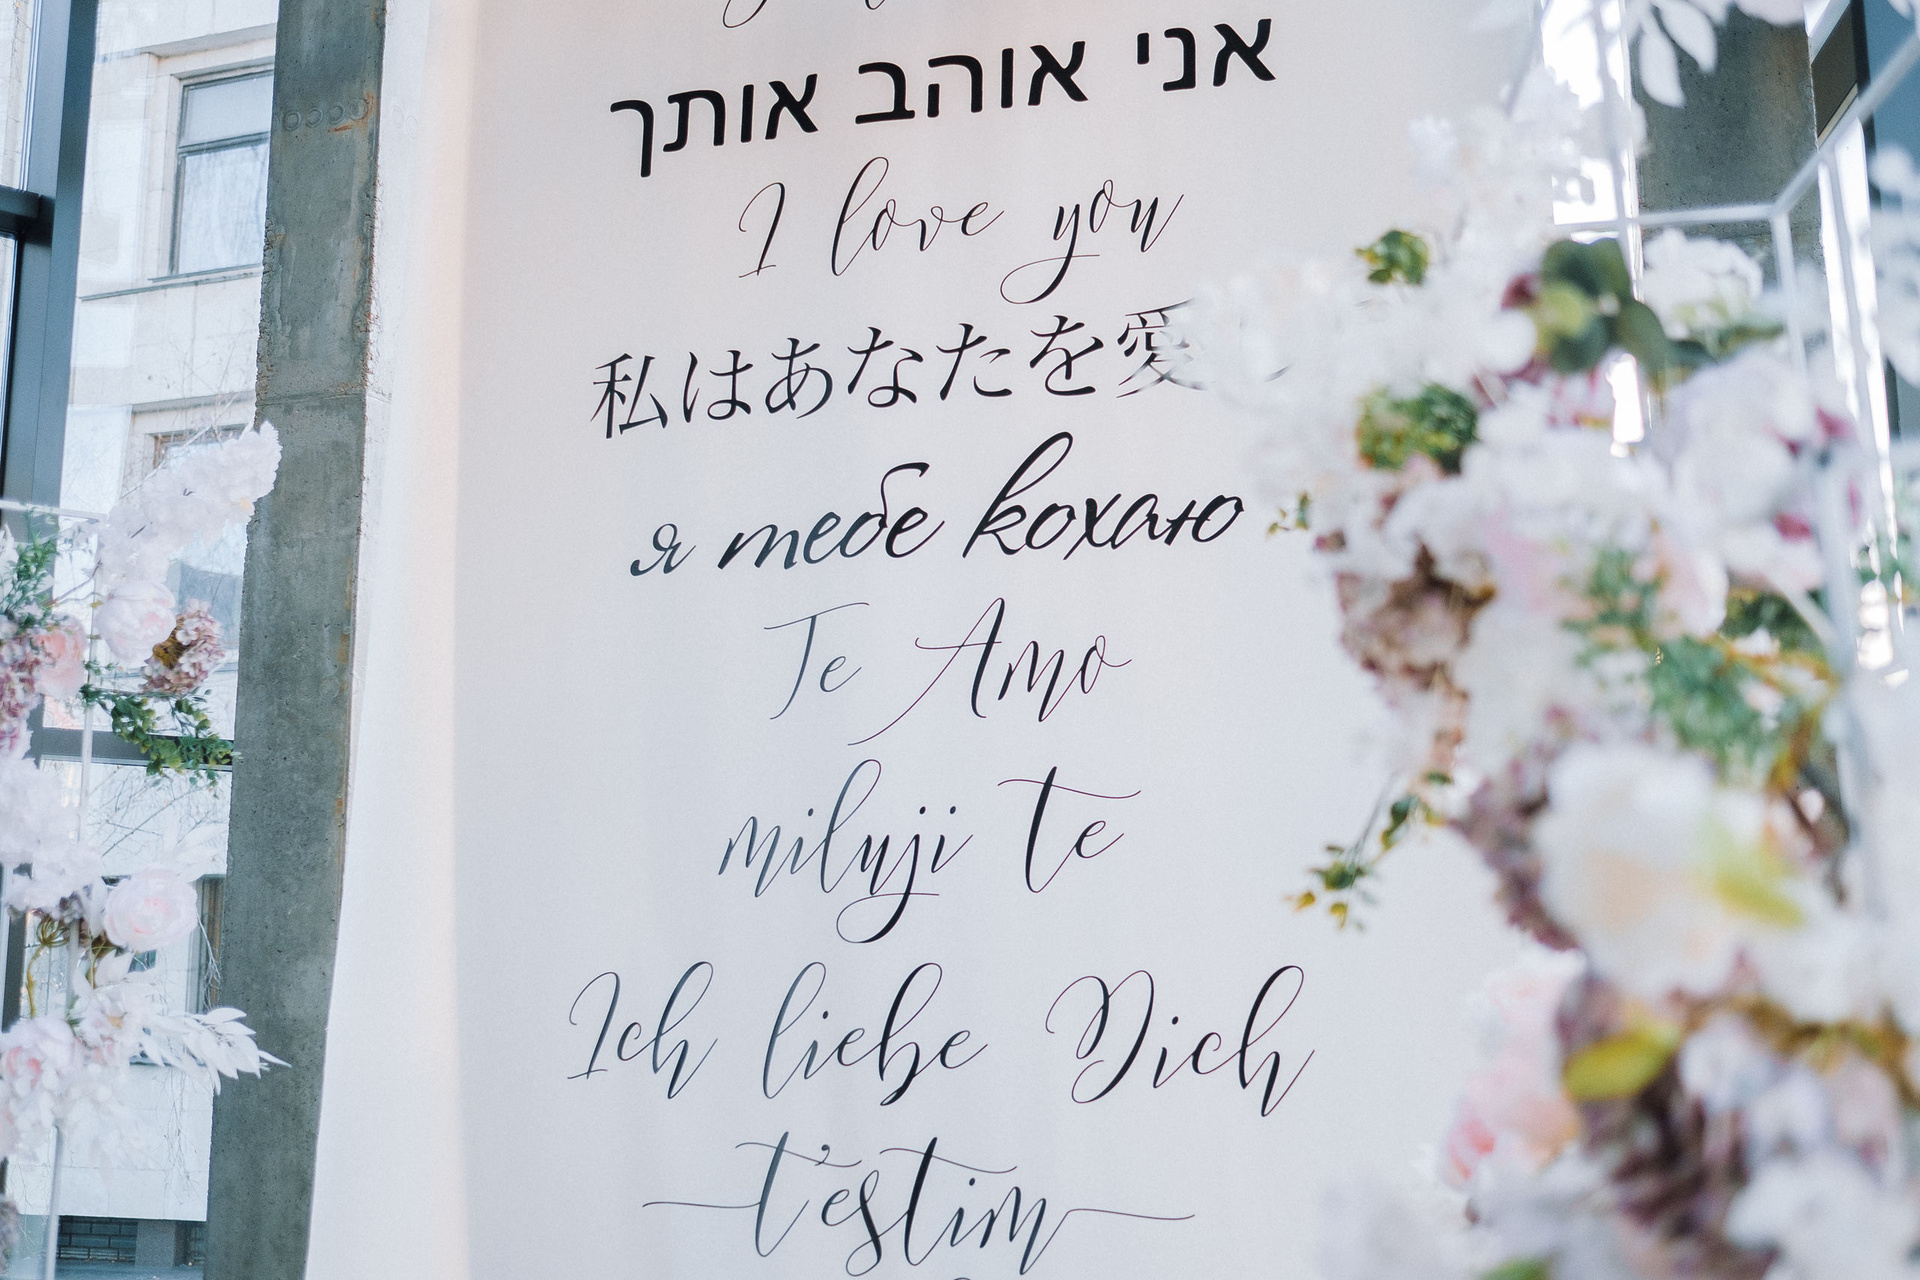 אני אוהב אותך
I love you
私はあなたを愛
я тебе кохаю
Te Amo
miluji te
Ich liebe Dich
t'estim